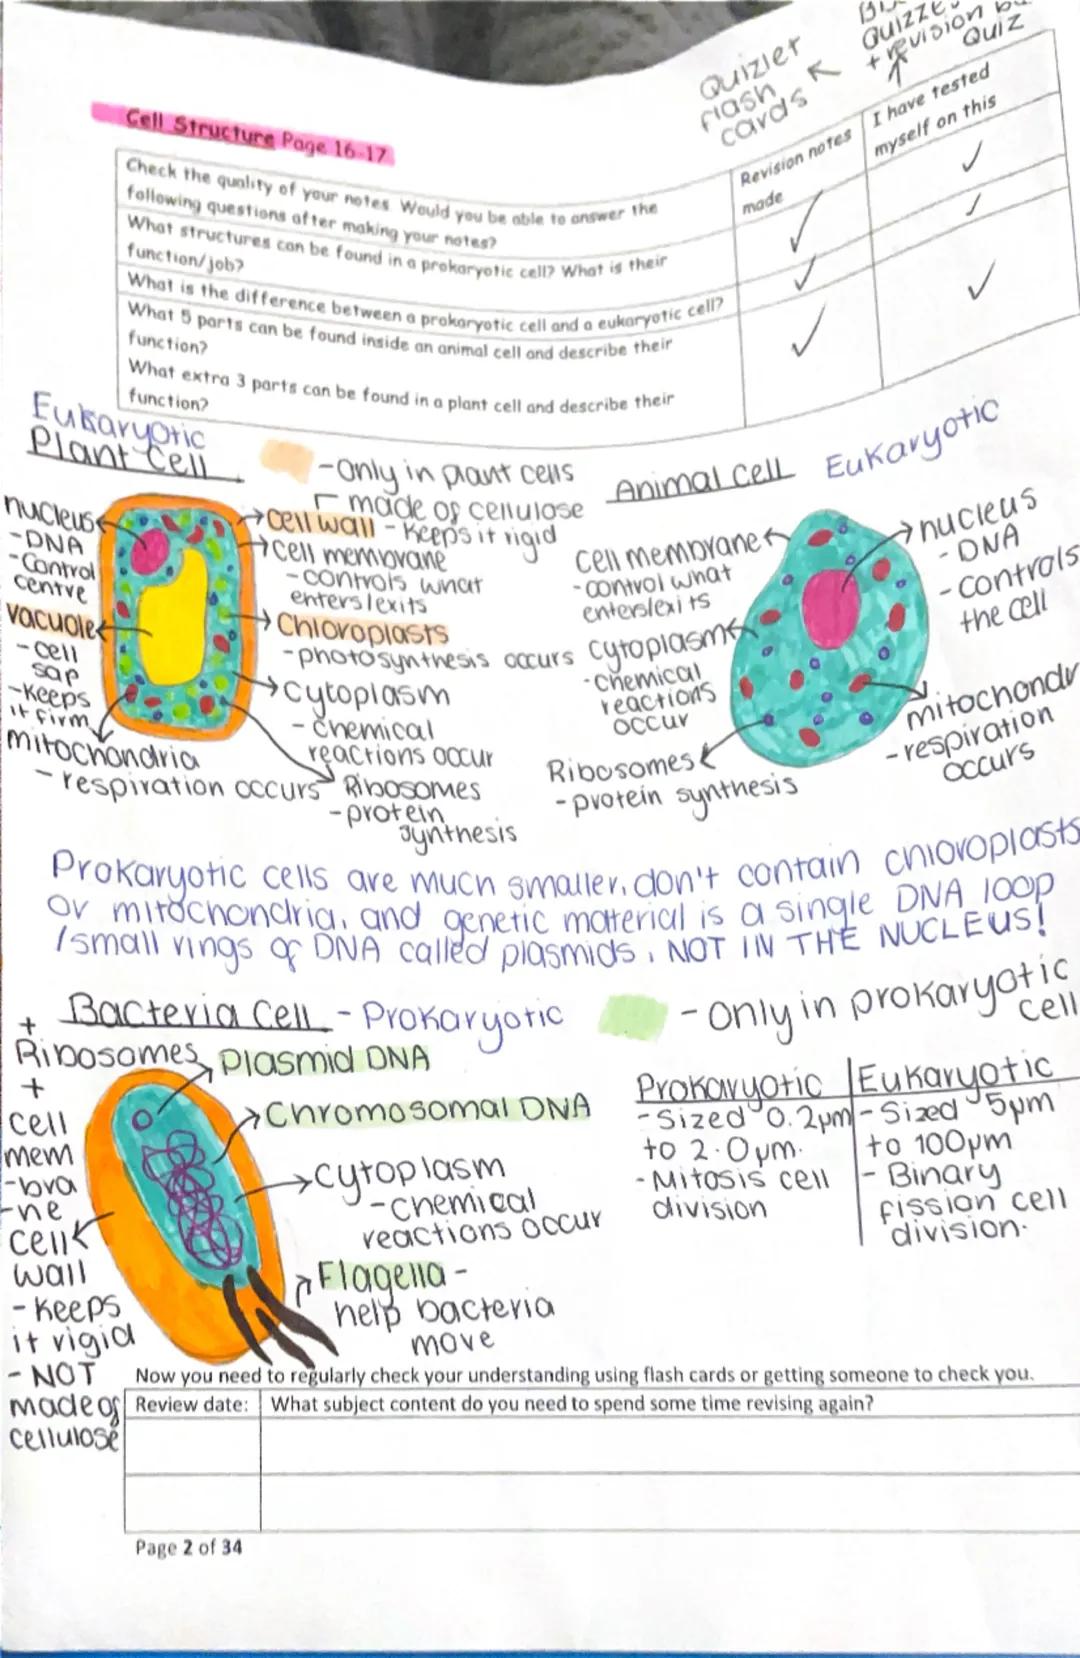 Quizlet
flash
cards
Quizze
+ revision
Quiz
Cell Structure Page 16-17
Revision notes
made
I have tested
myself on this
Check the quality of your notes. Would you be able to answer the
following questions after making your notes?
What structures can be found in a prokaryotic cell? What is their
function/job?
What is the difference between a prokaryotic cell and a eukaryotic cell?
What 5 parts can be found inside an animal cell and describe their
function?
What extra 3 parts can be found in a plant cell and describe their
function?
Eukaryotic
Plant Cell
- Only in plant cells
made of cellulose
cell wall - Keeps it rigid
cell membrane
- controls what
enters/exits
Chloroplasts
- photosynthesis occurs
cytoplasm
- chemical
reactions occur
Ribosomes
- protein
synthesis
nucleus
- DNA
- Control
centre
vacuole
- cell
sap
- Keeps
it firm
mitochondria
- respiration occurs
Animal Cell Eukaryotic
cell membrane
- control what
enters/exits
cytoplasm
- chemical
reactions
occur
Ribosomes
- protein synthesis
nucleus
- DNA
- controls
the cell
mitochondr
- respiration
occurs
Prokaryotic cells are much smaller, don't contain chloroplasts
or mitochondria, and genetic material is a single DNA loop
/small rings of DNA called plasmids, NOT IN THE NUCLEUS!
Bacteria Cell - Prokaryotic
- Only in prokaryotic
cell
+
Ribosomes
+
cell
mem
-bra
-ne
cell
wall
- Keeps
it rigid
- NOT
made of
cellulose
Plasmid DNA
Chromosomal DNA
cytoplasm
- chemical
reactions occur
Flagella -
help bacteria
move
Prokaryotic | Eukaryotic
- Sized 0.2µm | - Sized 5µm
to 2.0µm. | to 100µm
- Mitosis cell | - Binary
division | fission cell
division.
Now you need to regularly check your understanding using flash cards or getting someone to check you.
Review date: What subject content do you need to spend some time revising again?
Page 2 of 34